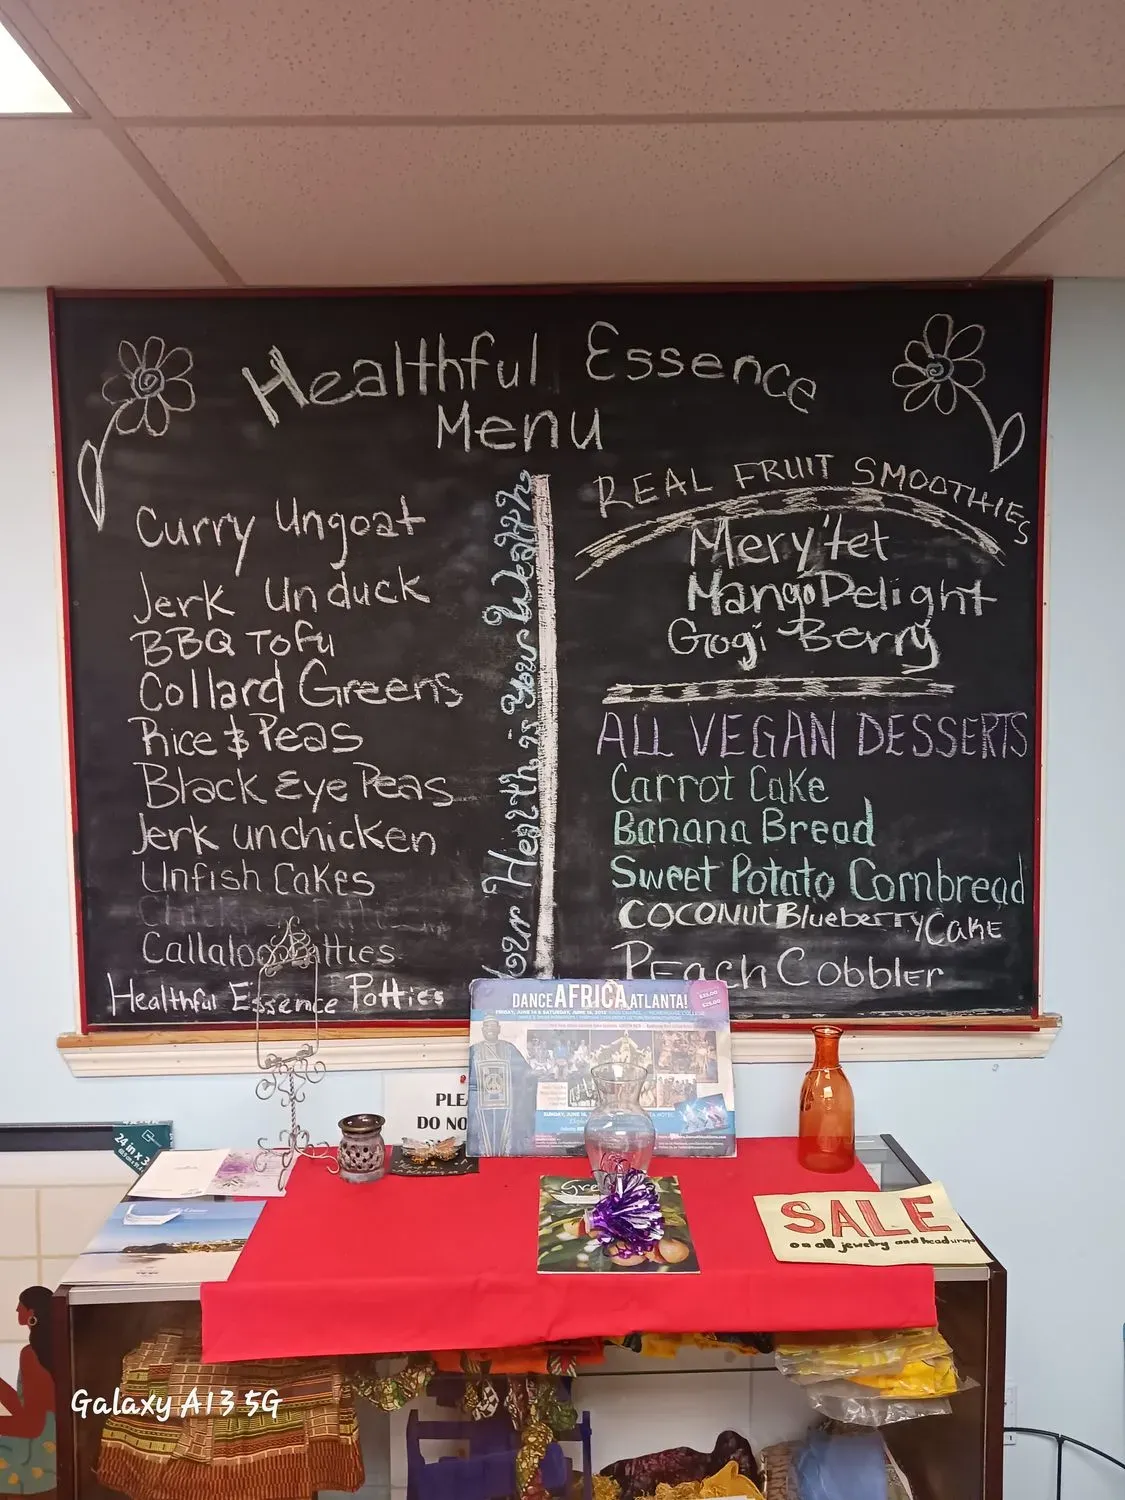 Healthful Essence
Menu
Curry Ungoat
Jerk Unduck
BBQ Tofu
Collard Greens
Rice & Peas
Black Eye Peas
Jerk unchicken
Unfish Cakes
Callaloo Patties
Healthful Essence Patties
Your Health is Your Wealth
REAL FRUIT SMOOTHIES
Mery'tet
Mango Delight
Gogi Berry
ALL VEGAN DESSERTS
Carrot Cake
Banana Bread
Sweet Potato Cornbread
COCONUT Blueberry Cake
Peach Cobbler
DANCE AFRICA, ATLANTA!
PLEA
DO NO
24 in x 3
SALE
on all jewelry and headwraps
Galaxy A13 5G